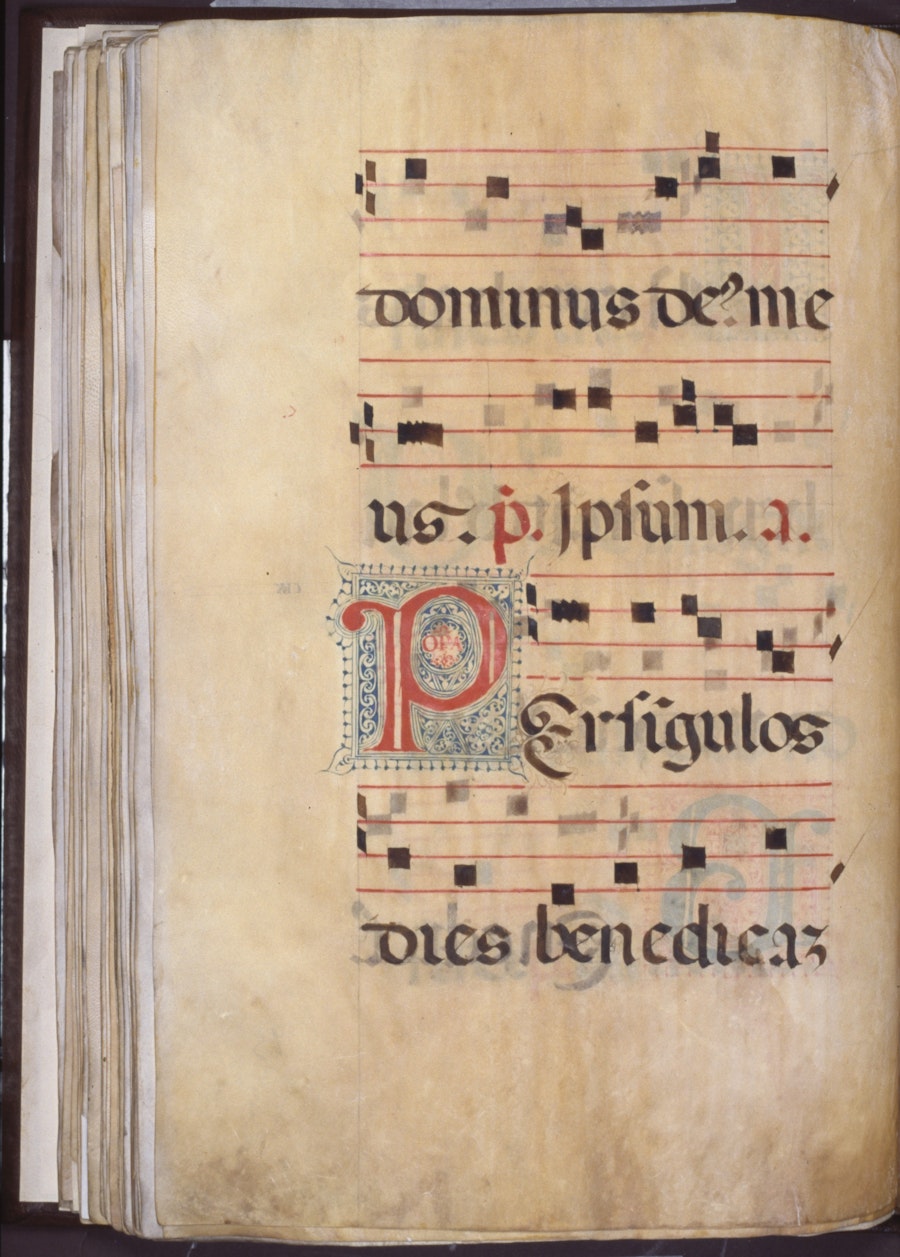 dominus de⁹ me
us. p̄. Ipsum. a.
PErsigulos
dies benedicaʒ